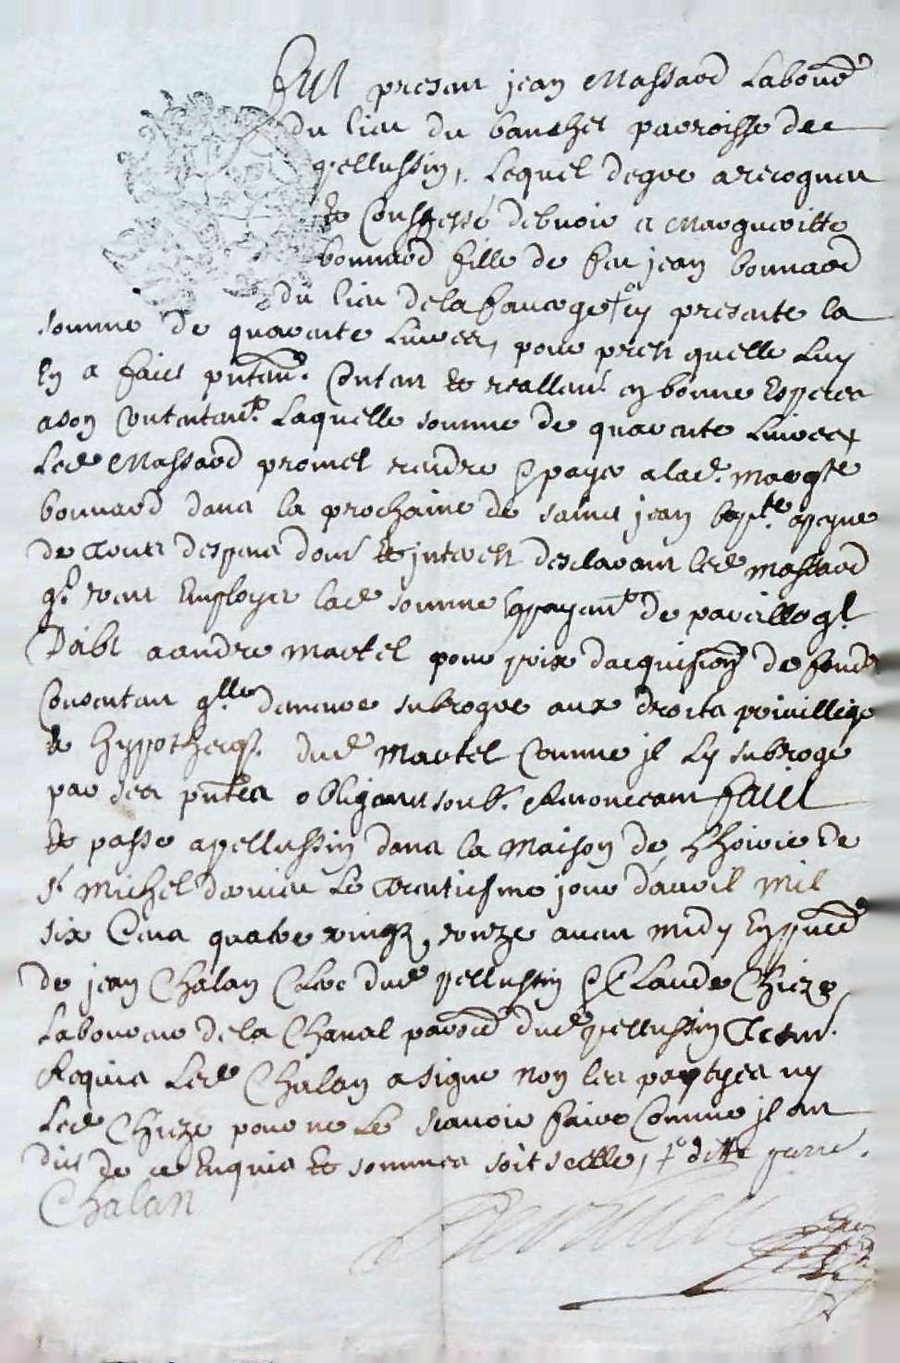 Fut present jean Massard Laboure
du lieu du banchet parroisse de
pellussin, Lequel de gre a recogneu
& Conffessé debvoir a Margueritte
bonnard fille de feu jean bonnard
du lieu de la faurge + icy presente la
somme de quarente Livres, pour prest quelle Luy
En a faict pntem. Contan & reallem en bonne Especes
a son Contentemt. Laquelle somme de quarente Livres
Led Massard promet rendre & payer a lad. Margte
bonnard dans la prochaine de saint jean bapte apeyne
de tous despens dom & interestz desclarant led massard
q. veut Employer lad somme Eppayemt de pareille ql
Doibt a andre martel pour prix dacquision de fonds
Consentan qlle demeure subroge aux droits privillege
& hyppotheq. dud martel Comme jl Ly subroge
par ses pntes obligeant soub. & Renoncant faict
& passe a pellussin dans la maison de Lhoirie de
st Michel dervieu Le trentiesme jour d'avril mil
six Cens quatre vingtz, avant midy En pnce
de jean Chalan Clerc dud pellussin & Claude Chieze
Laboureur de la Chanal parsse dud pellussin tesm.
Requis Led Chalan a signe non les partyes ny
Led Chieze pour ne Le scavoir faire Comme jl ont
dict de ce Enquis & sommes soit scelle,
Chalan